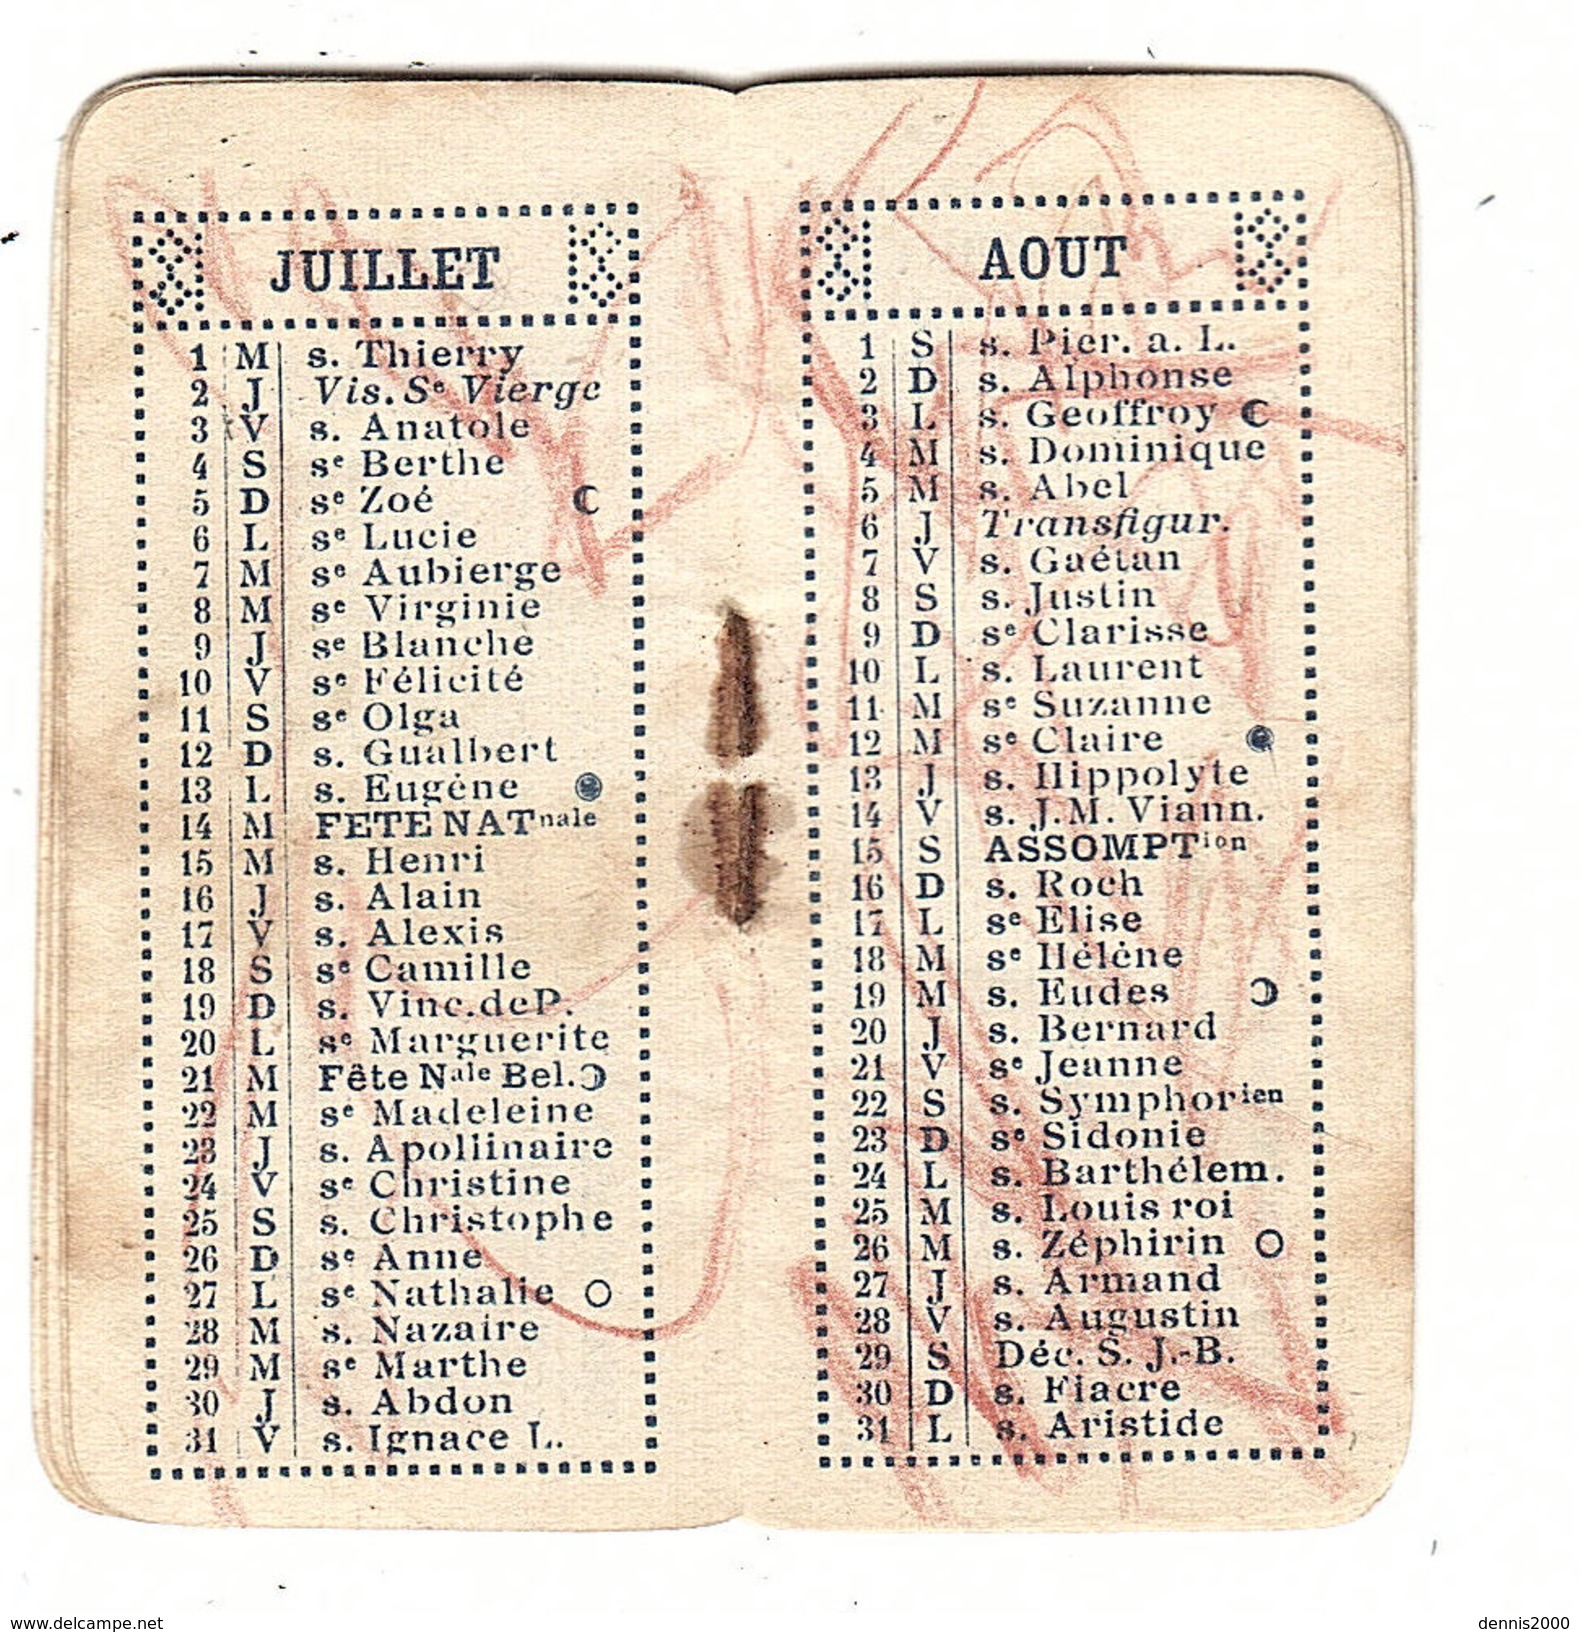 JUILLET
1 M s. Thierry
2 J Vis. Sᵉ Vierge
3 V s. Anatole
4 S sᵉ Berthe
5 D sᵉ Zoé ☾
6 L sᵉ Lucie
7 M sᵉ Aubierge
8 M sᵉ Virginie
9 J sᵉ Blanche
10 V sᵉ Félicité
11 S sᵉ Olga
12 D s. Gualbert
13 L s. Eugène ●
14 M FETE NATnale
15 M s. Henri
16 J s. Alain
17 V s. Alexis
18 S sᵉ Camille
19 D s. Vinc. de P.
20 L sᵉ Marguerite
21 M Fête Nale Bel. ☽
22 M sᵉ Madeleine
23 J s. Apollinaire
24 V sᵉ Christine
25 S s. Christophe
26 D sᵉ Anne
27 L sᵉ Nathalie ○
28 M s. Nazaire
29 M sᵉ Marthe
30 J s. Abdon
31 V s. Ignace L.
AOUT
1 S s. Pier. a. L.
2 D s. Alphonse
3 L s. Geoffroy ☾
4 M s. Dominique
5 M s. Abel
6 J Transfigur.
7 V s. Gaétan
8 S s. Justin
9 D sᵉ Clarisse
10 L s. Laurent
11 M sᵉ Suzanne
12 M sᵉ Claire ●
13 J s. Hippolyte
14 V s. J. M. Viann.
15 S ASSOMPTion
16 D s. Roch
17 L sᵉ Elise
18 M sᵉ Hélène
19 M s. Eudes ☽
20 J s. Bernard
21 V sᵉ Jeanne
22 S s. Symphorien
23 D sᵉ Sidonie
24 L s. Barthélem.
25 M s. Louis roi
26 M s. Zéphirin ○
27 J s. Armand
28 V s. Augustin
29 S Déc. S. J.-B.
30 D s. Fiacre
31 L s. Aristide
www.delcampe.net
dennis2000